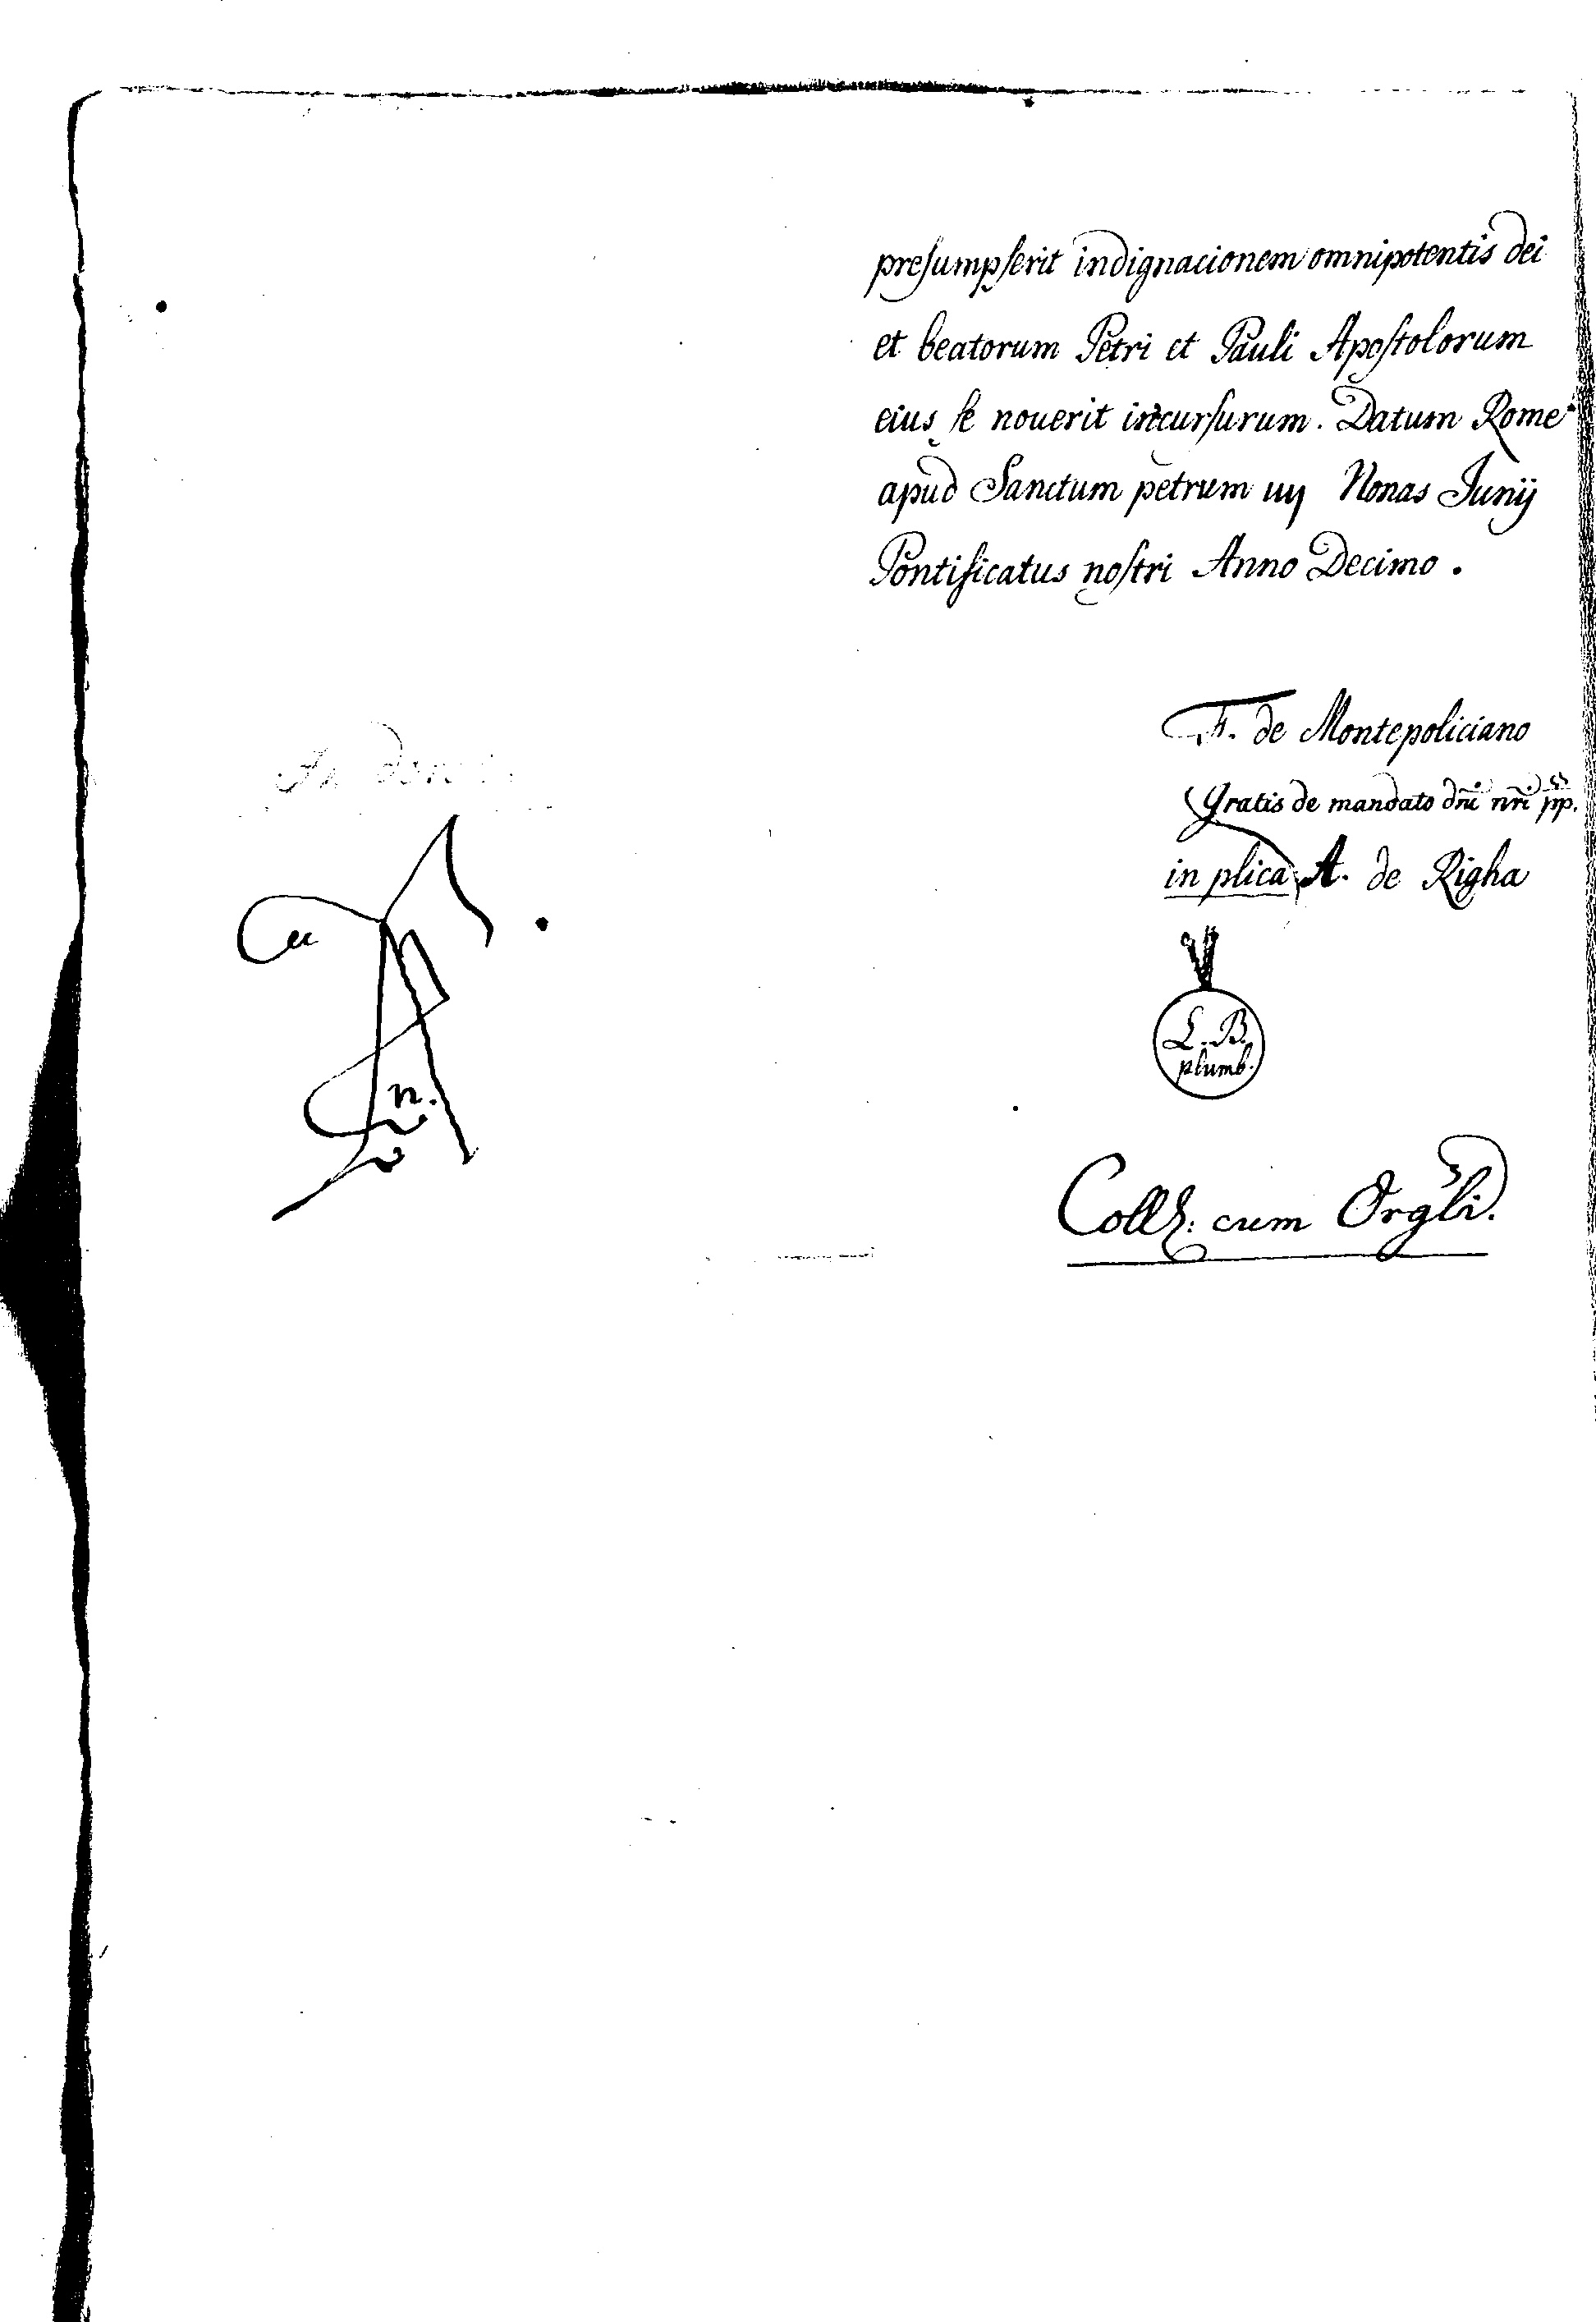 preſumpſerit indignacionem omnipotentis dei
et beatorum Petri et Pauli Apoſtolorum
eius ſe nouerit incurſurum. Datum Rome
apud Sanctum petrum iiij Nonas Junij
Pontificatus noſtri Anno Decimo.
F. de Montepoliciano
Gratis de mandato dñi nr̃i pp.
in plica A. de Righa
L. B.
plumb.
n.
Coll: cum Orgli.